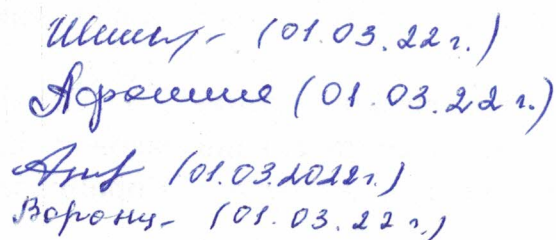 (01.03.22 г.)
Афонине (01.03.22 г.)
(01.03.2022г.)
Воронц- (01.03.22 г.)